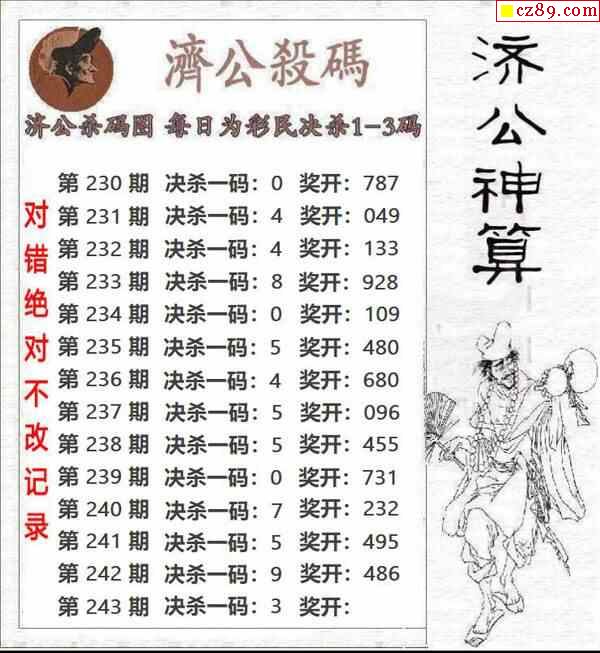 cz89.com
濟公殺碼
济公杀码图 每日为彩民决杀1-3码
第 230 期 决杀一码: 0 奖开: 787
第 231 期 决杀一码: 4 奖开: 049
第 232 期 决杀一码: 4 奖开: 133
第 233 期 决杀一码: 8 奖开: 928
第 234 期 决杀一码: 0 奖开: 109
第 235 期 决杀一码: 5 奖开: 480
第 236 期 决杀一码: 4 奖开: 680
第 237 期 决杀一码: 5 奖开: 096
第 238 期 决杀一码: 5 奖开: 455
第 239 期 决杀一码: 0 奖开: 731
第 240 期 决杀一码: 7 奖开: 232
第 241 期 决杀一码: 5 奖开: 495
第 242 期 决杀一码: 9 奖开: 486
第 243 期 决杀一码: 3 奖开:
对错绝对不改记录
济公神算